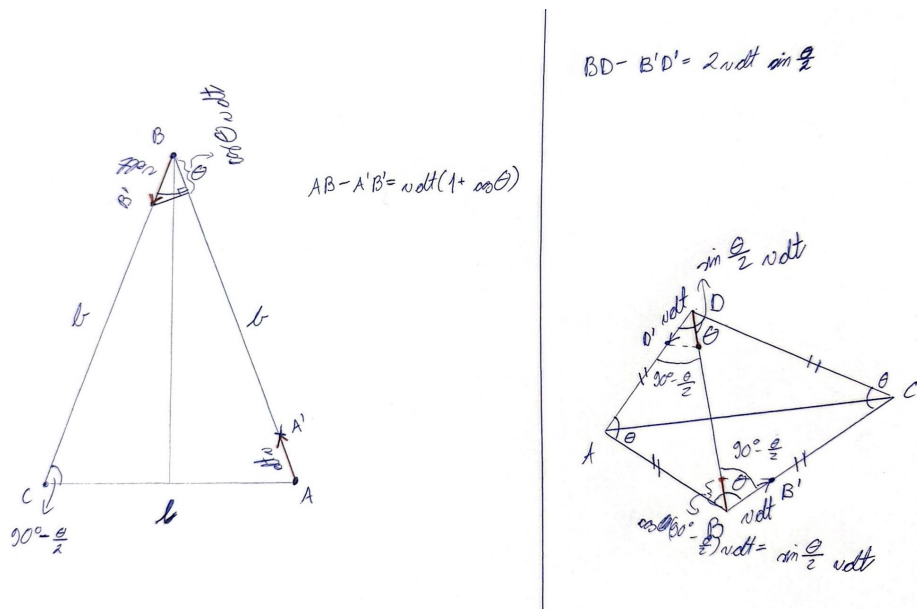 B
cosθ vdt
θ
vdt
B'
AB - A'B' = vdt(1 + cosθ)
b
b
A'
vdt
C
A
b
90° - θ/2
BD - B'D' = 2vdt sin θ/2
sin θ/2 vdt
vdt
D
D'
θ
90° - θ/2
θ
C
A
θ
90° - θ/2
θ
B'
B
vdt
vdt = sin θ/2 vdt